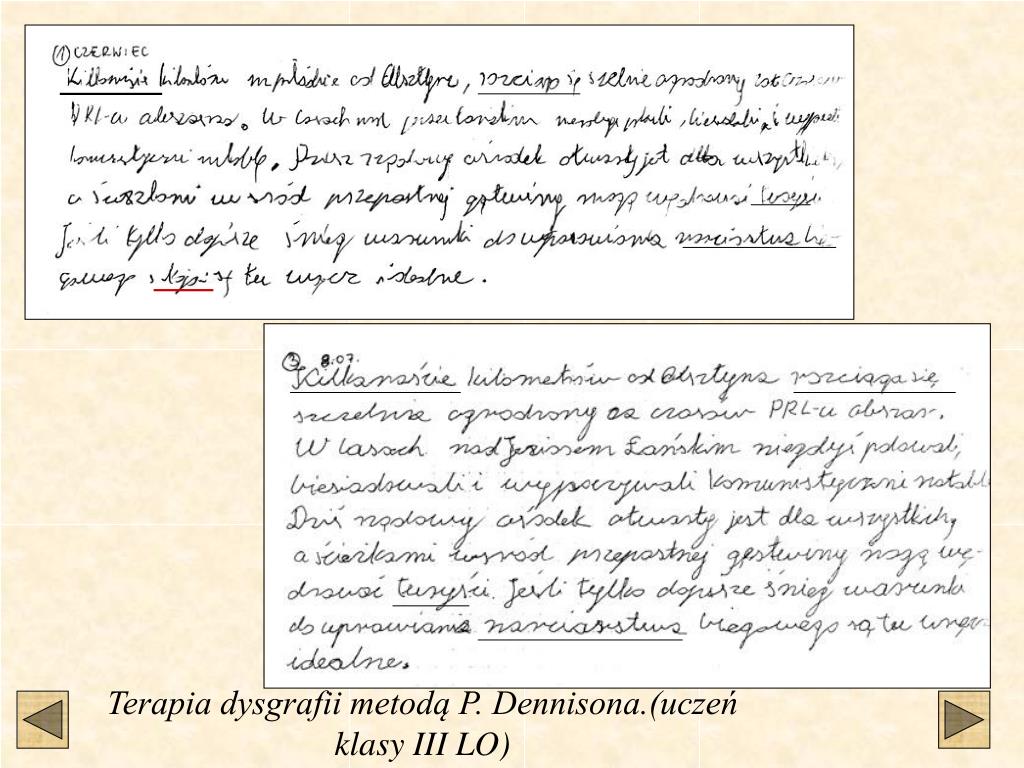 ① CZERWIEC
kilometrów od Olsztyna, rozciąga się szelnie ogrodzony
PRL-u W lasach nad
komunistyczni rządowy ośrodek otwarty jet dla wszystkich,
a wśród przepastnej gęstwiny mogą wędrować turyści
Jeśli tylko dopisze śnieg warunki do uprawiania narciarstwa bie-
gowego są tu wręcz idealne.
③ 8.07.
Kilkanaście kilometrów od Olsztyna rozciąga się
szczelnie ogrodzony za czasów PRL-u obszar.
W lasach nad Jeziorem Łańskim niegdyś polowali,
biesiadowali i wypoczywali komunistyczni notabl
Dziś rządowy ośrodek otwarty jest dla wszystkich,
a ścieżkami wśród przepastnej gęstwiny mogą wę-
drować turyści. Jeśli tylko dopisze śnieg warunki
do uprawiania narciarstwa biegowego są tu wręcz
idealne.
Terapia dysgrafii metodą P. Dennisona.(uczeń
klasy III LO)